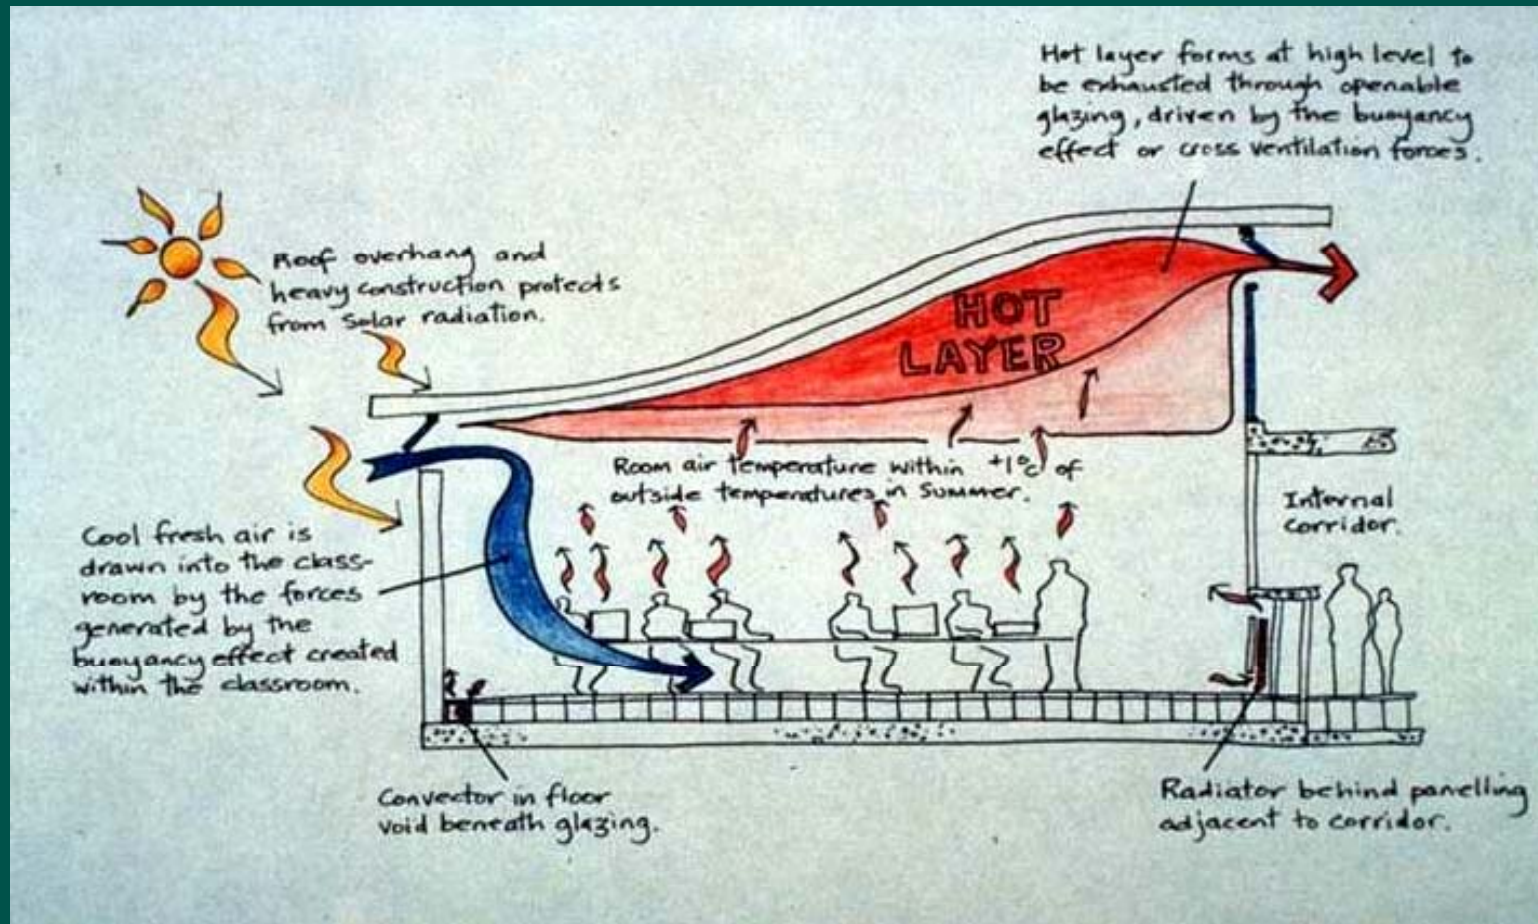 Hot layer forms at high level to
be exhausted through openable
glazing, driven by the buoyancy
effect or cross ventilation forces.
Roof overhang and
heavy construction protects
from Solar radiation.
HOT
LAYER
Room air temperature within +1°c of
outside temperatures in Summer.
Internal
corridor.
Cool fresh air is
drawn into the class-
room by the forces
generated by the
buoyancy effect created
within the classroom.
Convector in floor
void beneath glazing.
Radiator behind panelling
adjacent to corridor.